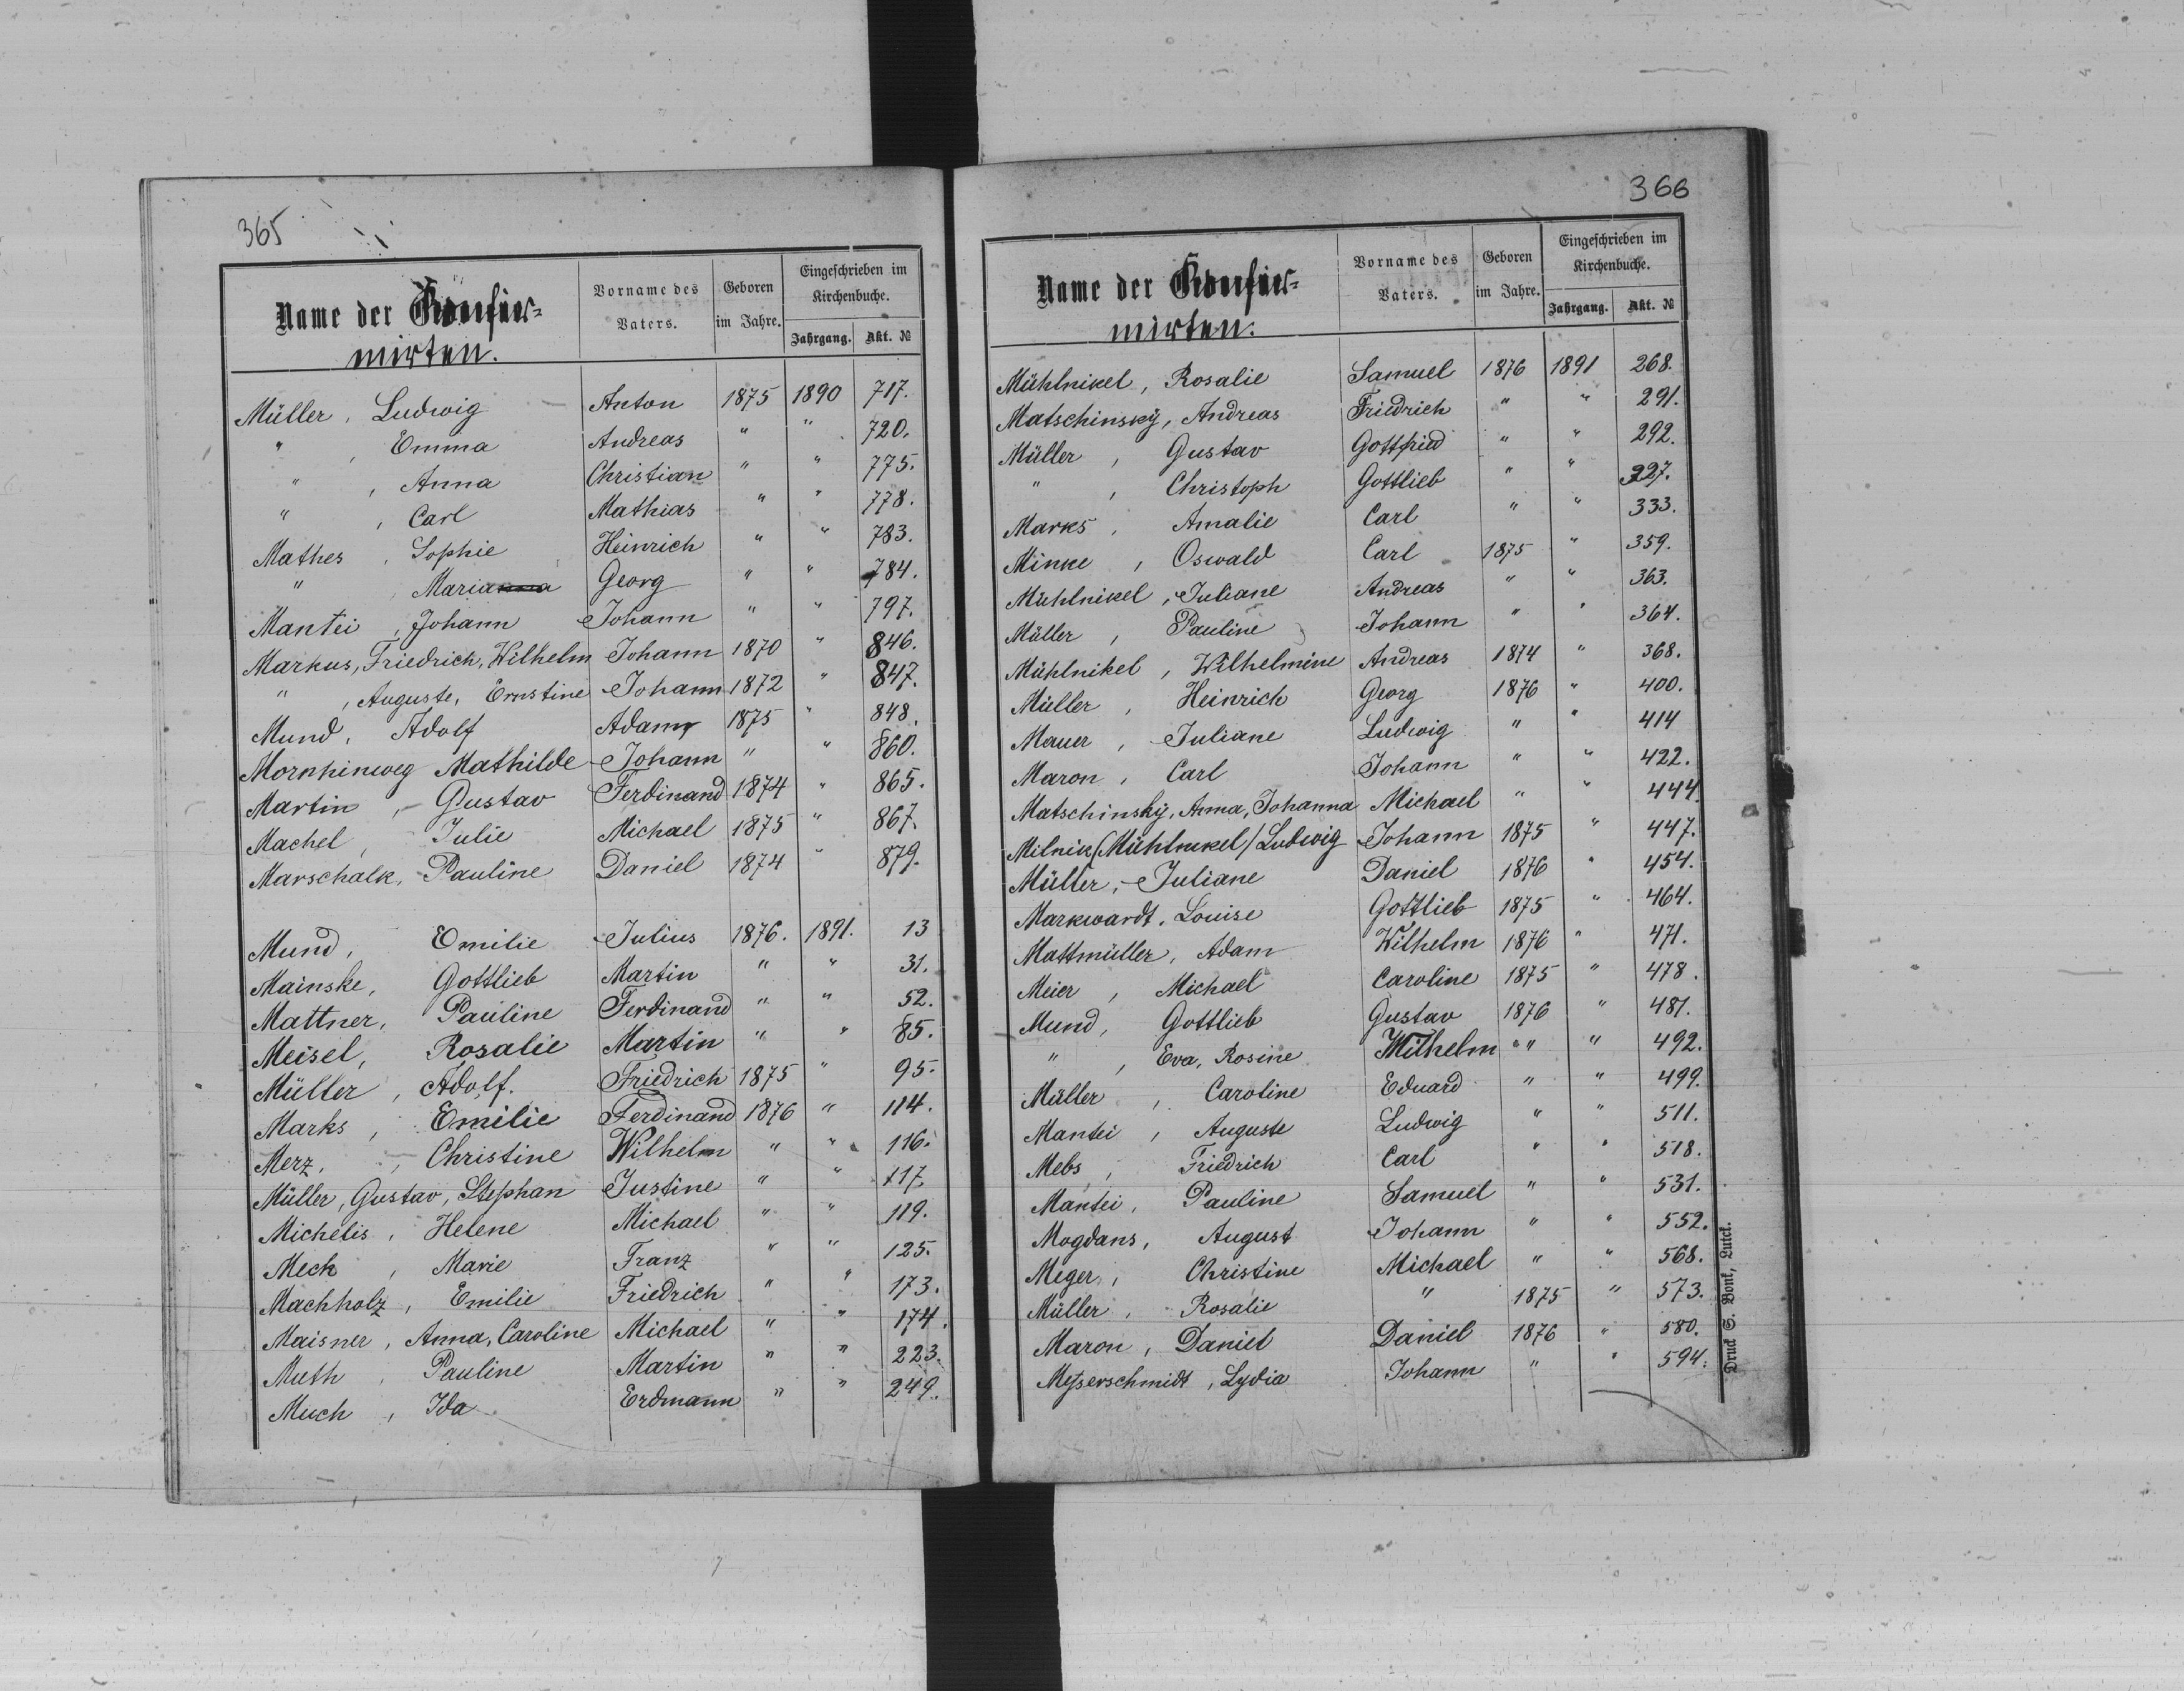 365
Name der Konfir=
mirten.
Vorname des
Vaters.
Geboren
im Jahre.
Eingeschrieben im
Kirchenbuche.
Jahrgang. Akt. №
Müller, Ludwig Anton 1875 1890 717.
" , Emma Andreas " " 720.
" , Anna Christian " " 775.
" , Carl Mathias " " 778.
Mathes, Sophie Heinrich " " 783.
" , Maria Georg " " 784.
Mantei, Johann Johann " " 797.
Markus, Friedrich, Wilhelm Johann 1870 " 846.
" , Auguste, Ernstine Johann 1872 " 847.
Mund, Adolf Adam 1875 " 848.
Mornhinweg Mathilde Johann " " 860.
Martin, Gustav Ferdinand 1874 " 865.
Machel, Julie Michael 1875 " 867.
Marschalk, Pauline Daniel 1874 " 879.
Mund, Emilie Julius 1876. 1891. 13
Mainske, Gottlieb Martin " " 31.
Mattner, Pauline Ferdinand " " 52.
Meisel, Rosalie Martin " " 85.
Müller, Adolf. Friedrich 1875 " 95.
Marks, Emilie Ferdinand 1876 " 114.
Merz, Christine Wilhelm " " 116.
Müller, Gustav, Stephan Justine " " 117.
Michelis, Helene Michael " " 119.
Meck, Marie Franz " " 125.
Machholz, Emilie Friedrich " " 173.
Maisner, Anna, Caroline Michael " " 174.
Muth, Pauline Martin " " 223.
Much, Ida Erdmann " " 249.
366
Name der Konfir=
mirten.
Vorname des
Vaters.
Geboren
im Jahre.
Eingeschrieben im
Kirchenbuche.
Jahrgang. Akt. №
Mühlnikel, Rosalie Samuel 1876 1891 268.
Matschinský, Andreas Friedrich " " 291.
Müller, Gustav Gottfried " " 292.
" , Christoph Gottlieb " " 327.
Marks, Amalie Carl " " 333.
Minke, Oswald Carl 1875 " 359.
Mühlnikel, Juliane Andreas " " 363.
Müller, Pauline Johann " " 364.
Mühlnikel, Wilhelmine Andreas 1874 " 368.
Müller, Heinrich Georg 1876 " 400.
Mauer, Juliane Ludwig " " 414
Maron, Carl Johann " " 422.
Matschinský, Anna, Johanna Michael " " 444.
Milnik (Mühlnikel) Ludwig Johann 1875 " 447.
Müller, Juliane Daniel 1876 " 454.
Markwardt, Louise Gottlieb 1875 " 464.
Mattmüller, Adam Wilhelm 1876 " 471.
Meier, Michael Caroline 1875 " 478.
Mund, Gottlieb Gustav 1876 " 481.
" , Eva, Rosine Wilhelm " " 492.
Müller, Caroline Eduard " " 499.
Mantei, Auguste Ludwig " " 511.
Mebs, Friedrich Carl " " 518.
Mantei, Pauline Samuel " " 531.
Mogdans, August Johann " " 552.
Meger, Christine Michael " " 568.
Müller, Rosalie " 1875 " 573.
Maron, Daniel Daniel 1876 " 580.
Meßerschmidt, Lydia Johann " " 594.
Druck S. Bonk, Lutck.